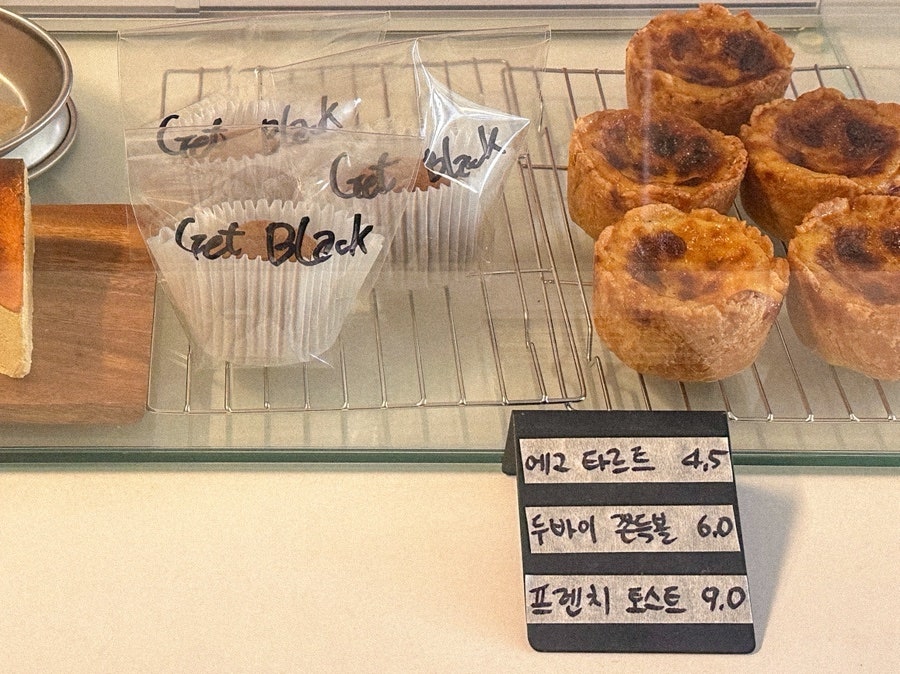 Get Black
Get Black
Get Black
에그 타르트 4,5
두바이 쫀득볼 6.0
프렌치 토스트 9.0